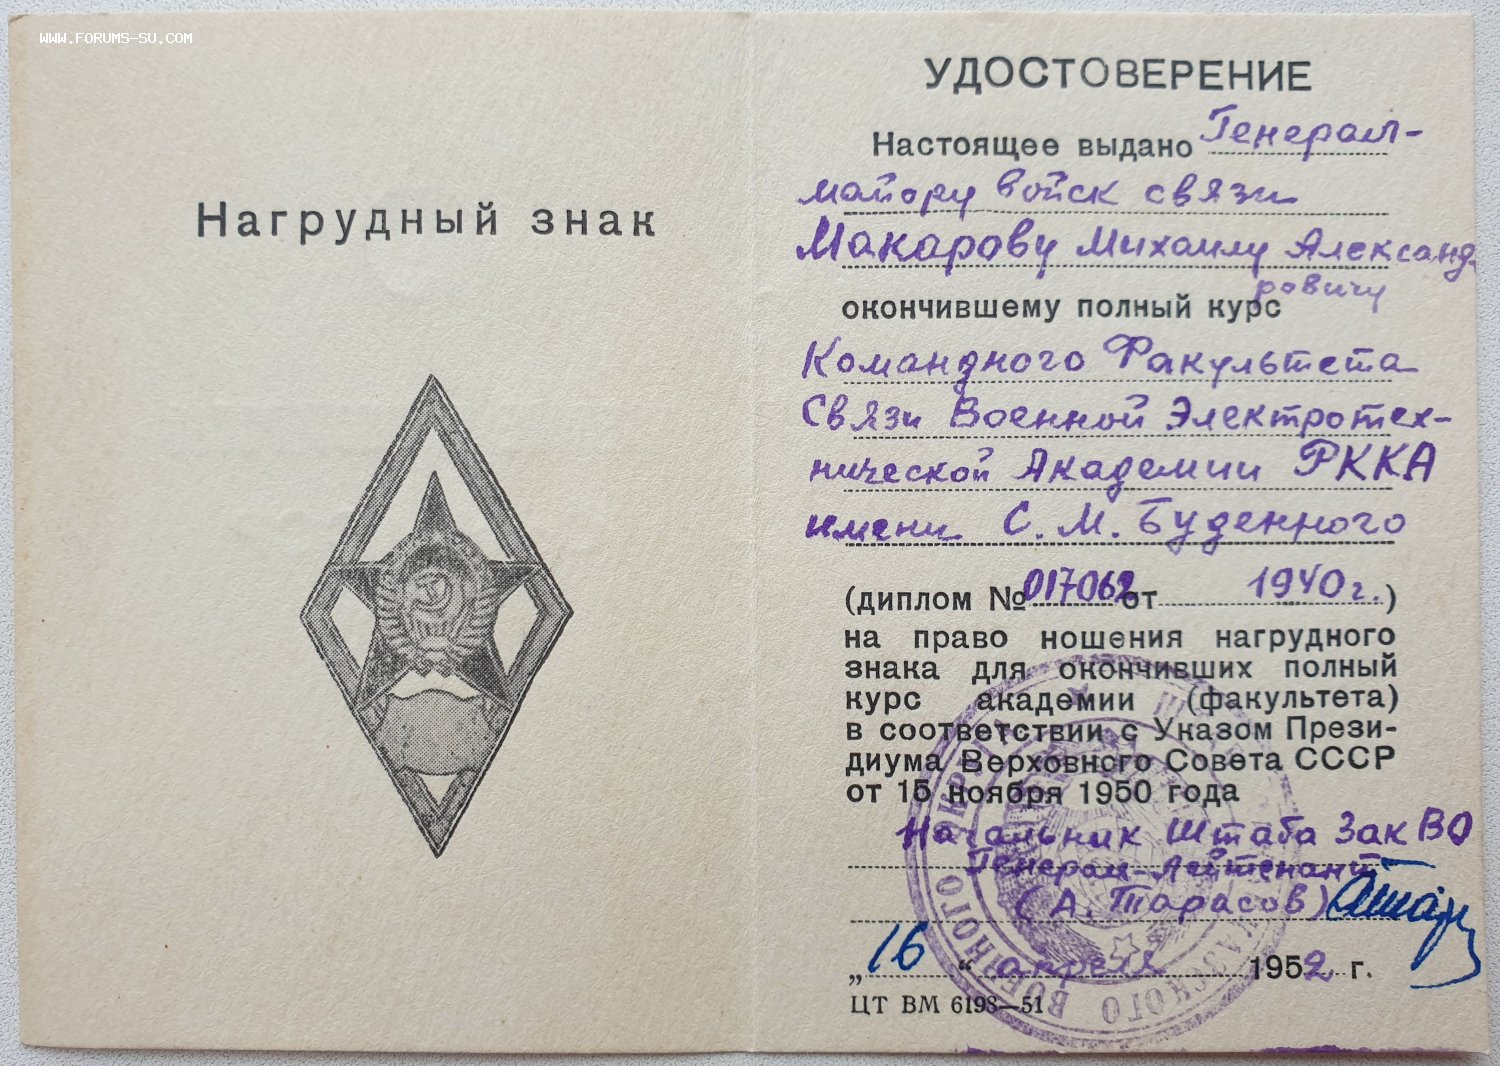 WWW.FORUMS-SU.COM
Нагрудный знак
УДОСТОВЕРЕНИЕ
Настоящее выдано Генерал-
майору войск связи
Макарову Михаилу Александ-
ровичу
окончившему полный курс
Командного Факультета
Связи Военной Электротех-
нической Академии РККА
имени С. М. Буденного
(диплом № 017062 от 1940 г.)
на право ношения нагрудного
знака для окончивших полный
курс академии (факультета)
в соответствии с Указом Прези-
диума Верховнсго Совета СССР
от 15 ноября 1950 года
Начальник Штаба ЗакВО
Генерал-Лейтенант
(А. Тарасов)
„16“ апреля 1952 г.
ЦТ ВМ 6198—51
ВОЕННОГО ОКРУГА